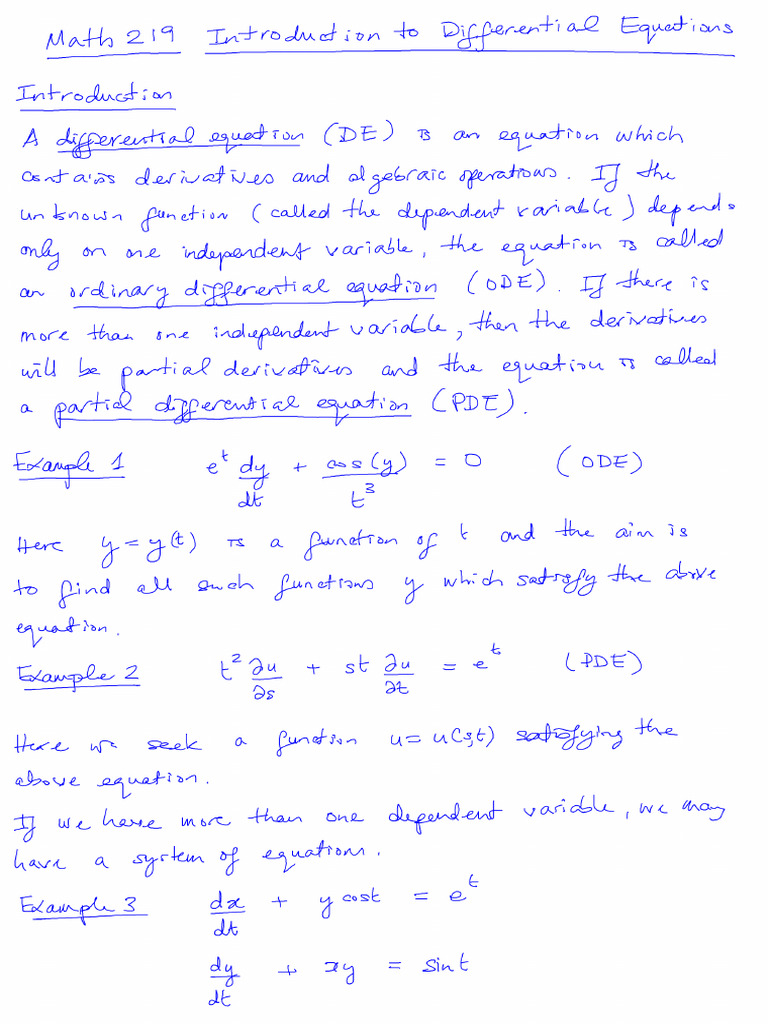 Math 219 Introduction to Differential Equations
Introduction
A differential equation (DE) is an equation which
contains derivatives and algebraic operations. If the
unknown function (called the dependent variable) depends
only on one independent variable, the equation is called
an ordinary differential equation (ODE). If there is
more than one independent variable, then the derivatives
will be partial derivatives and the equation is called
a partial differential equation (PDE).
Example 1 e^t dy/dt + cos(y)/t^3 = 0 (ODE)
Here y = y(t) is a function of t and the aim is
to find all such functions y which satisfy the above
equation.
Example 2 t^2 ∂u/∂s + st ∂u/∂t = e^t (PDE)
Here we seek a function u = u(s,t) satisfying the
above equation.
If we have more than one dependent variable, we may
have a system of equations.
Example 3 dx/dt + y cost = e^t
dy/dt + xy = sint